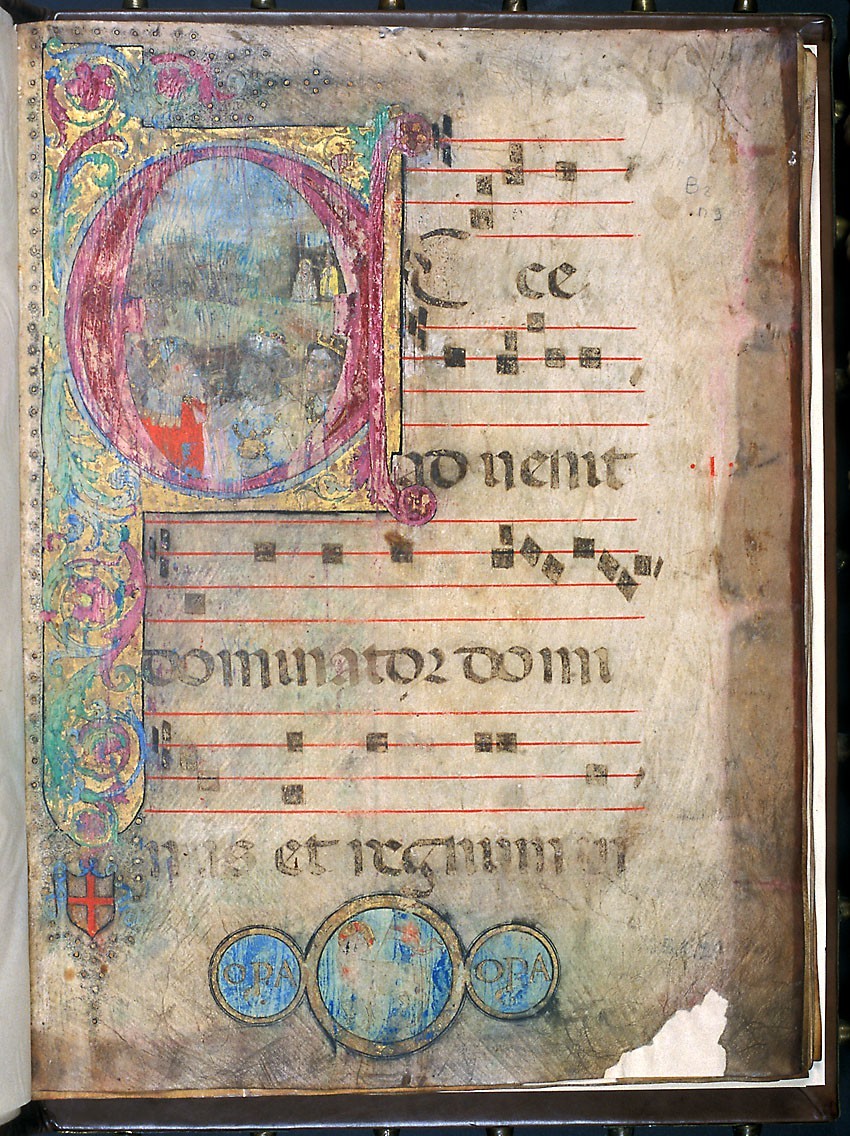 Ecce
aduenit
dominator domi
nus et regnum in
· I ·
OPA OPA